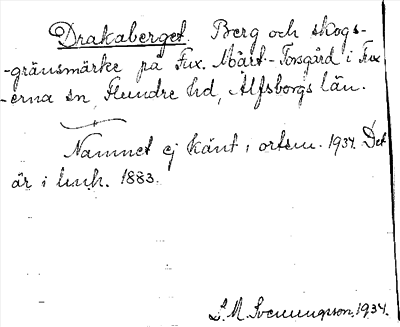 Drakaberget. Berg och skogs-
-gränsmärke på Fux. Mårt.-Torsgård i Fux-
-erna sn, Flundre hd, Älfsborgs län.
Namnet ej känt i orten. 1934. Det
är i 1883.
S. M. Svenungsson, 1934.